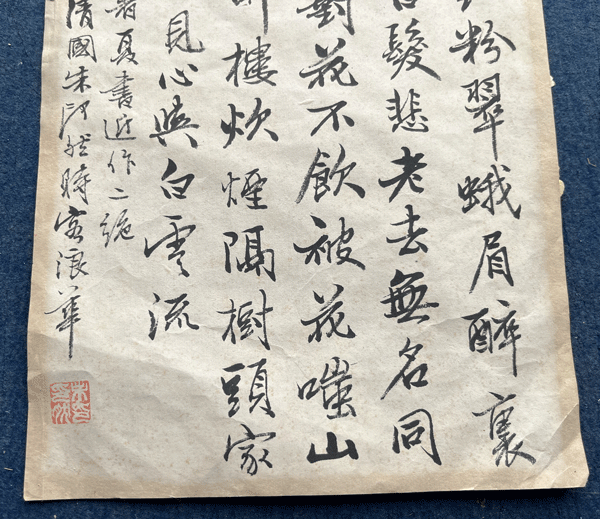 粉翠蛾眉醉裏
髮悲老去無名同
對花不飲被花嗤山
樓炊煙隔樹頭家
見心與白雲流
夏書近作二絕
清國朱印然時客浪華